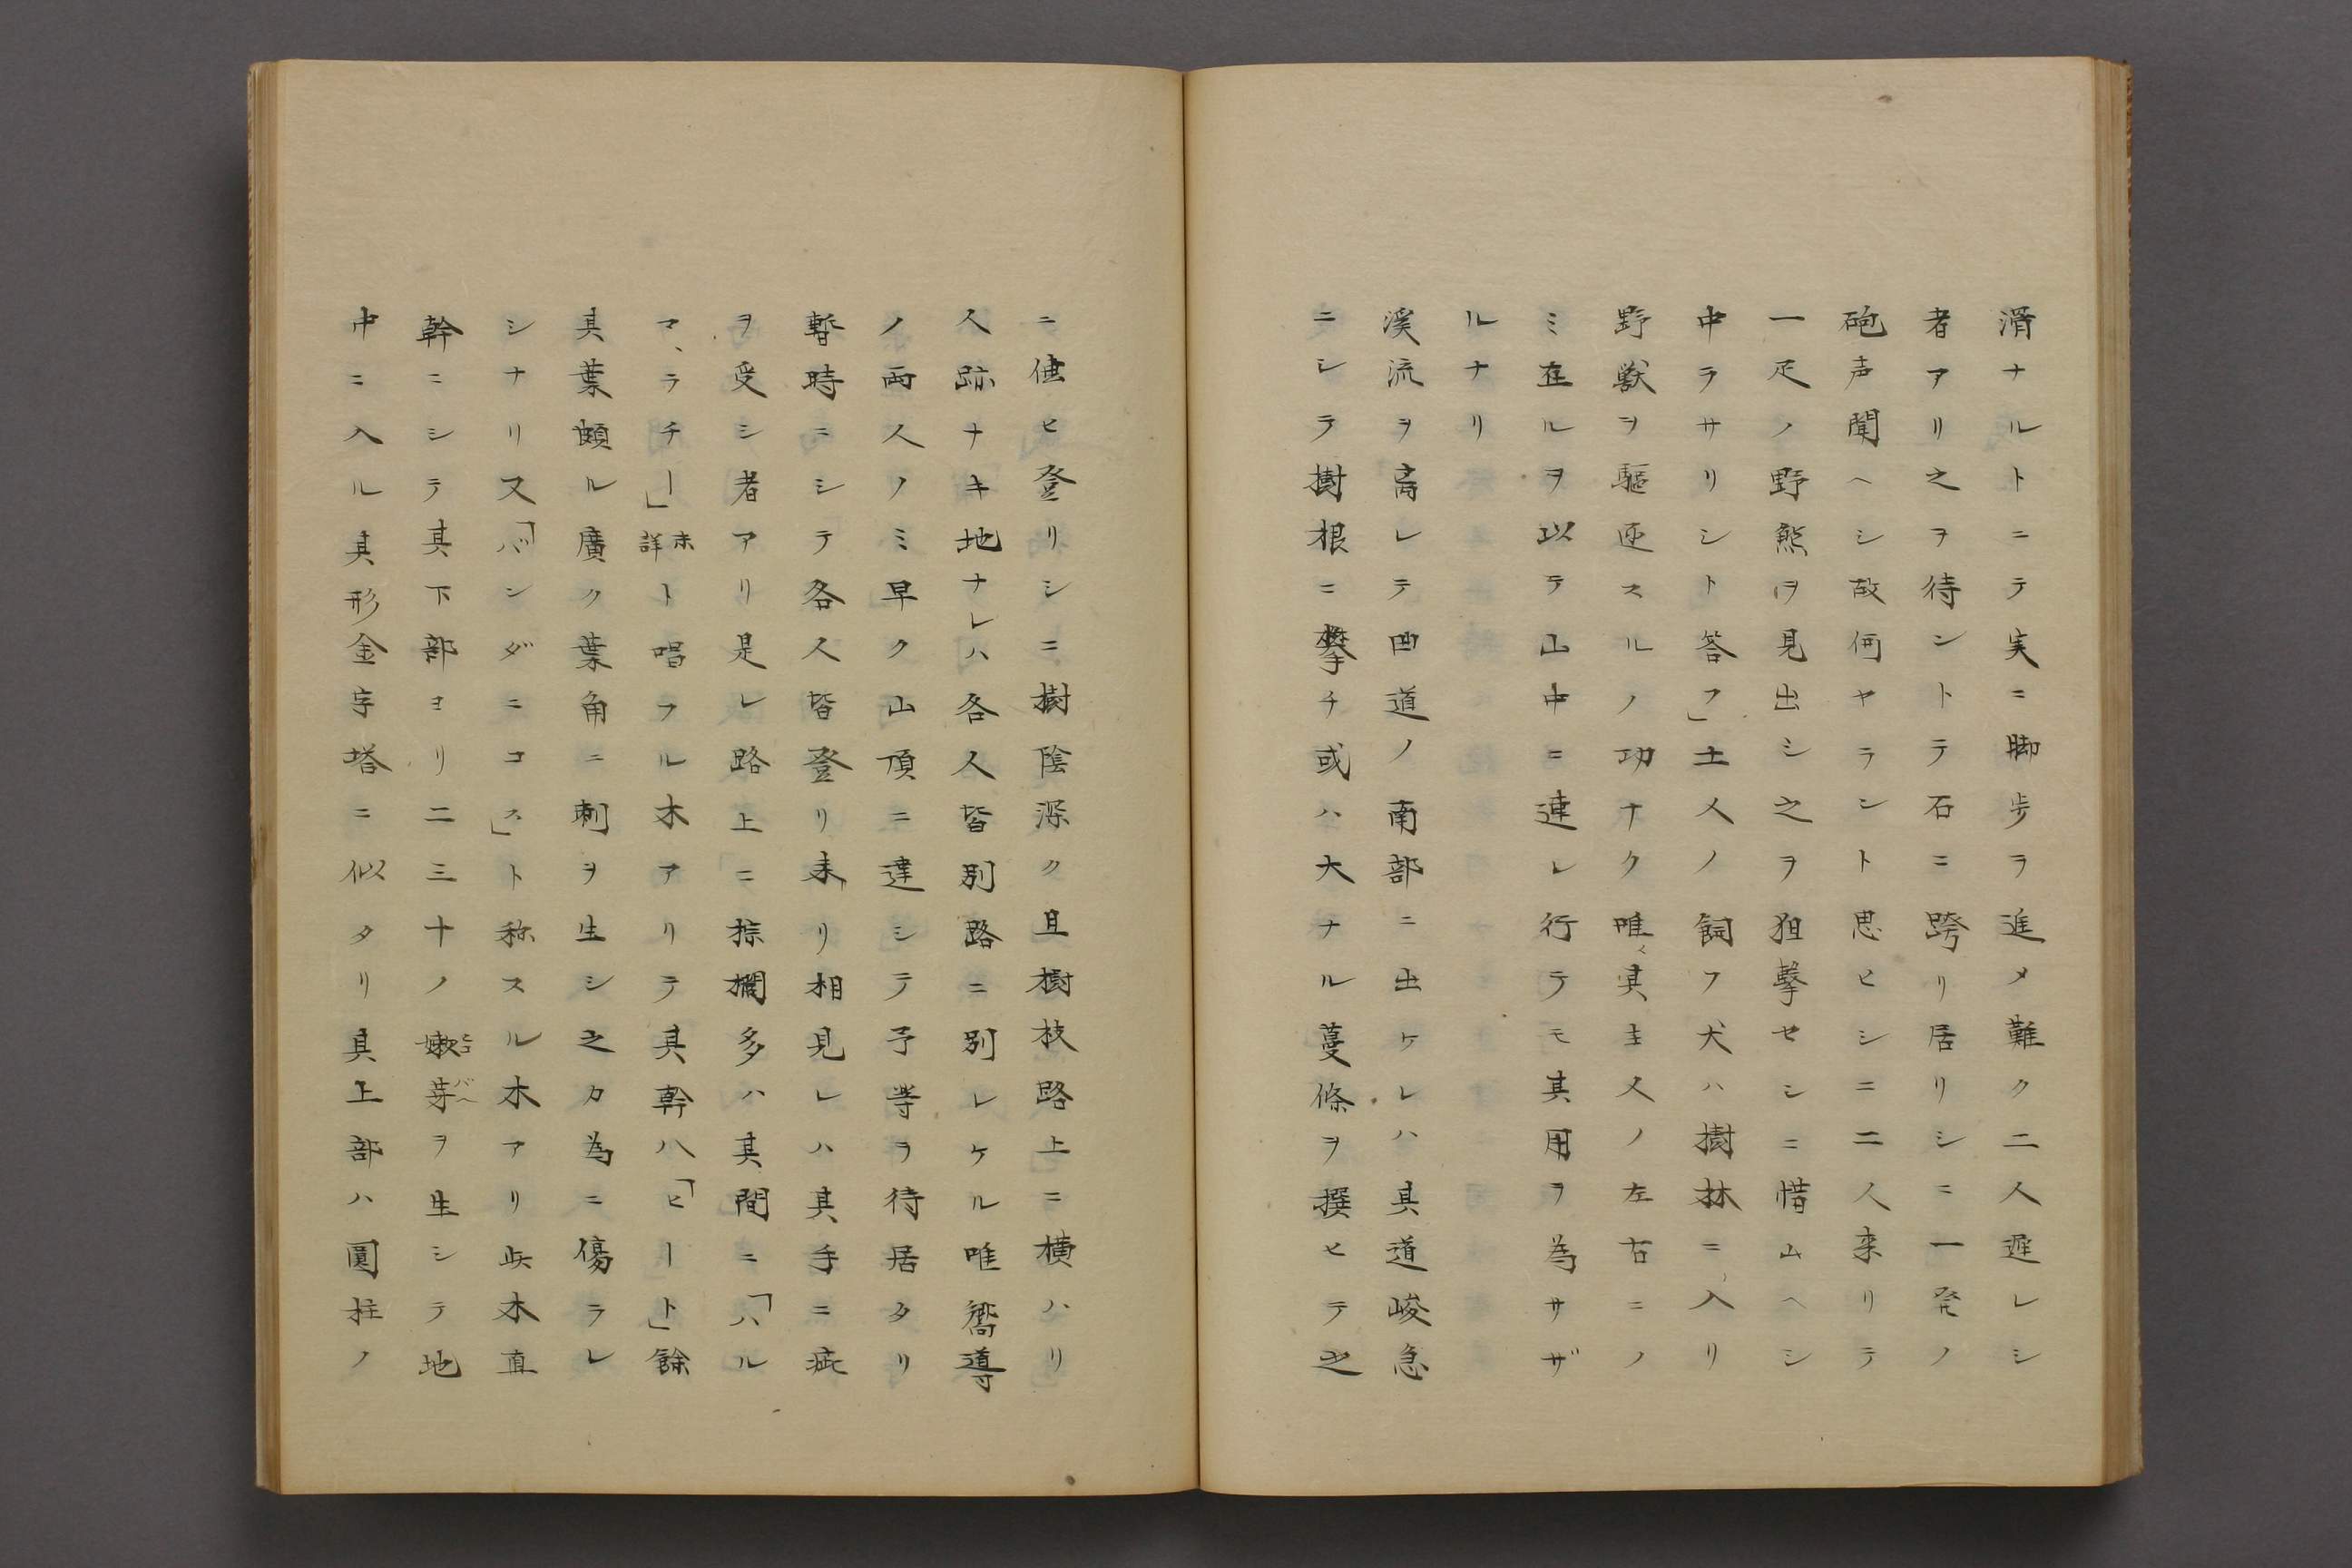 滑ナルトニテ実ニ脚歩ヲ進メ難ク二人遅レシ
者アリ之ヲ待ントテ石ニ跨リ居リシニ一発ノ
砲声聞ヘシ故何ヤラシト思ヒシニ二人来リテ
一疋ノ野熊ヲ見出シ之ヲ狙撃セシニ惜ムヘシ
中ラサリシト答フ」土人ノ飼フ犬ハ樹林ニ入リ
野獣ヲ駆逐スルノ功ナク唯々其主人ノ左右ニノ
ミ在ルヲ以テ山中ニ連レ行テモ其用ヲ為サザ
ルナリ
渓流ヲ离レテ曲道ノ南部ニ出ケレハ其道峻急
ニシテ樹根ニ攀チ或ハ大ナル蔓條ヲ撰ヒテ之
ニ倢ヒ登リシニ樹陰深ク且樹枝路上ニ横ハリ
人跡ナキ地ナレハ各人皆別路ニ別レケル唯嚮導
ノ両人ノミ早ク山頂ニ達シテ予等ヲ待居タリ
暫時ニシテ各人皆登リ来リ相見レハ其手ニ疵
ヲ受シ者アリ是レ路上ニ棕櫚多ハ其間ニ「ハル
マヽラチー」未詳ト唱フル木アリテ其幹ハ「ヒート」餘
其葉頗ル廣ク葉角ニ刺ヲ生シ之カ為ニ傷ラレ
シナリ又「バンダニコス」ト称スル木アリ此木直
幹ニシテ其下部ヨリ二三十ノ嫩芽ヒコバヘヲ生シテ地
中ニ入ル其形金字塔ニ似タリ其上部ハ圓柱ノ